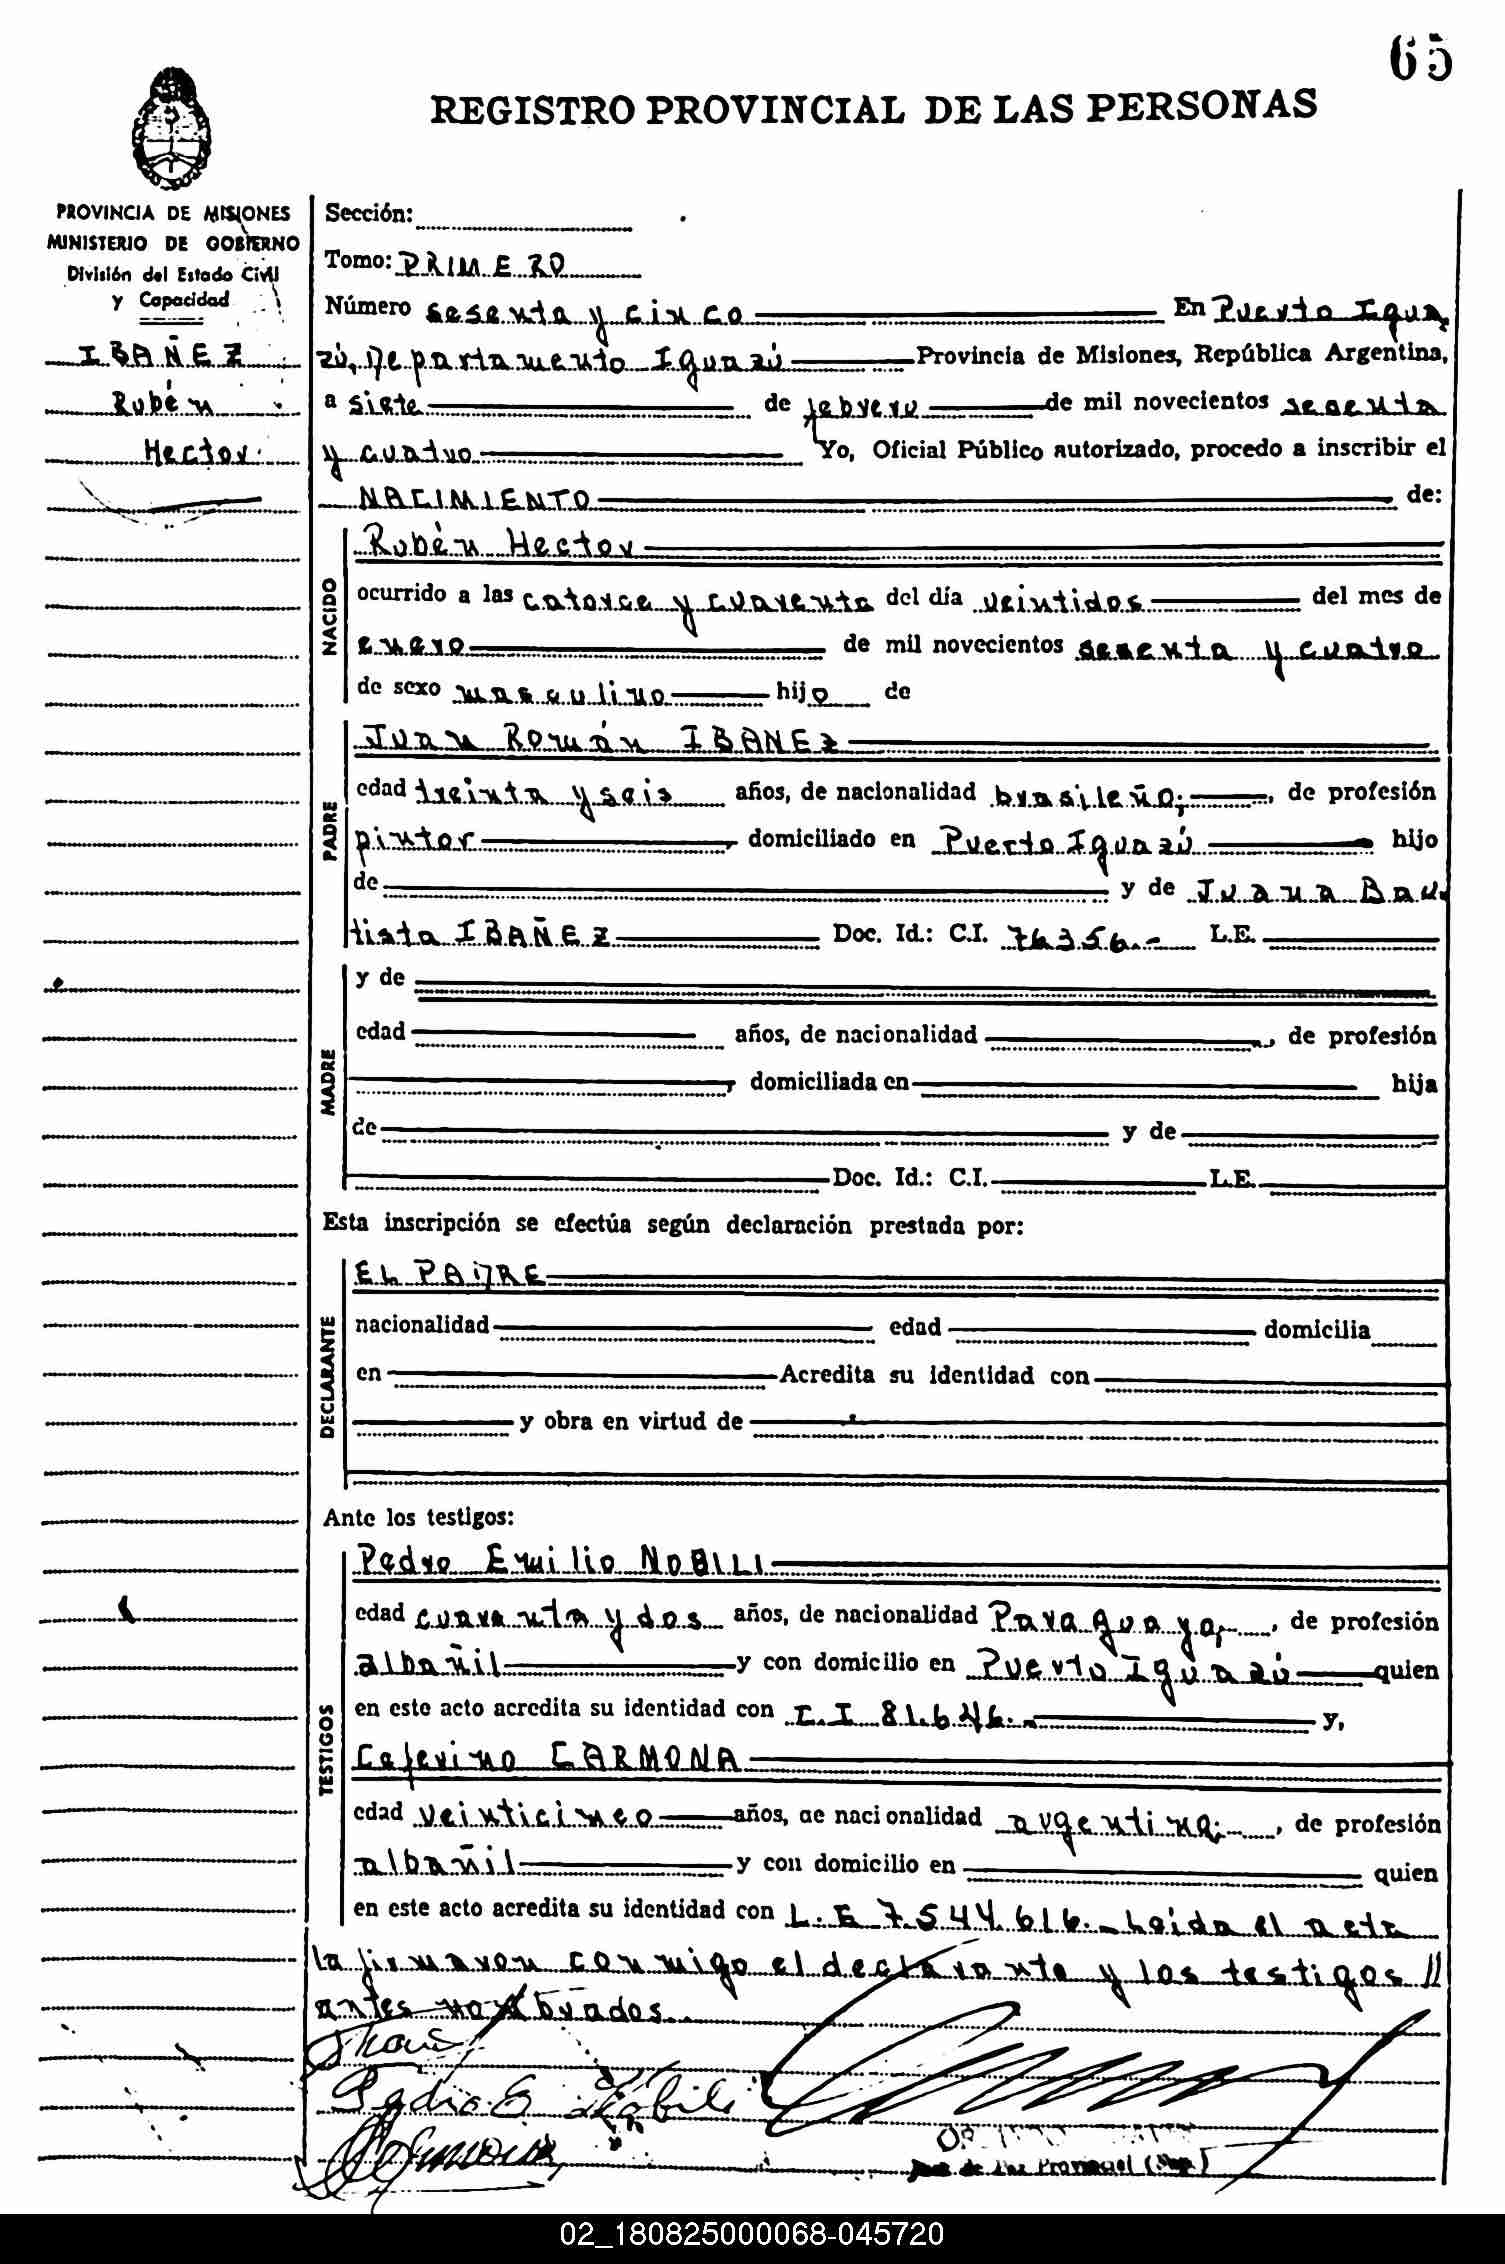 65
REGISTRO PROVINCIAL DE LAS PERSONAS
PROVINCIA DE MISIONES
MINISTERIO DE GOBIERNO
División del Estado Civil
y Capacidad
IBAÑEZ
Rubén
Hector
Sección:
Tomo: PRIMERO
Número sesenta y cinco En Puerto Igua
zú, Departamento Iguazú Provincia de Misiones, República Argentina,
a siete de febrero de mil novecientos sesenta
y cuatro Yo, Oficial Público autorizado, procedo a inscribir el
NACIMIENTO de:
NACIDO
Rubén Hector
ocurrido a las catorce y cuarenta del día veintidos del mes de
enero de mil novecientos sesenta y cuatro
de sexo masculino hijo de
PADRE
Juan Román IBAÑEZ
edad treinta y seis años, de nacionalidad brasileño; de profesión
pintor, domiciliado en Puerto Iguazú hijo
de y de Juana Bau
tista IBAÑEZ Doc. Id.: C.I. 76356.- L.E.
MADRE
y de
edad años, de nacionalidad , de profesión
, domiciliada en hija
de y de
Doc. Id.: C.I. L.E.
Esta inscripción se efectúa según declaración prestada por:
DECLARANTE
EL PADRE
nacionalidad edad domicilia
en Acredita su identidad con
y obra en virtud de
Ante los testigos:
TESTIGOS
Pedro Emilio NOBILI
edad cuarenta y dos años, de nacionalidad Paraguaya, de profesión
albañil y con domicilio en Puerto Iguazú quien
en este acto acredita su identidad con C.I 81.646.- y,
Ceferino CARMONA
edad veinticinco años, de nacionalidad argentina; , de profesión
albañil y con domicilio en quien
en este acto acredita su identidad con L.E 7.544.616.- Leida el acta
la firmaron conmigo el declarante y los testigos //
antes nombrados.
Pedro E Nobili
Carmona
de Paz Provincial
02_180825000068-045720